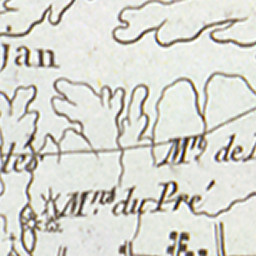 Jan
lés
M.ⁿ de
M.ⁿˢ du Pré